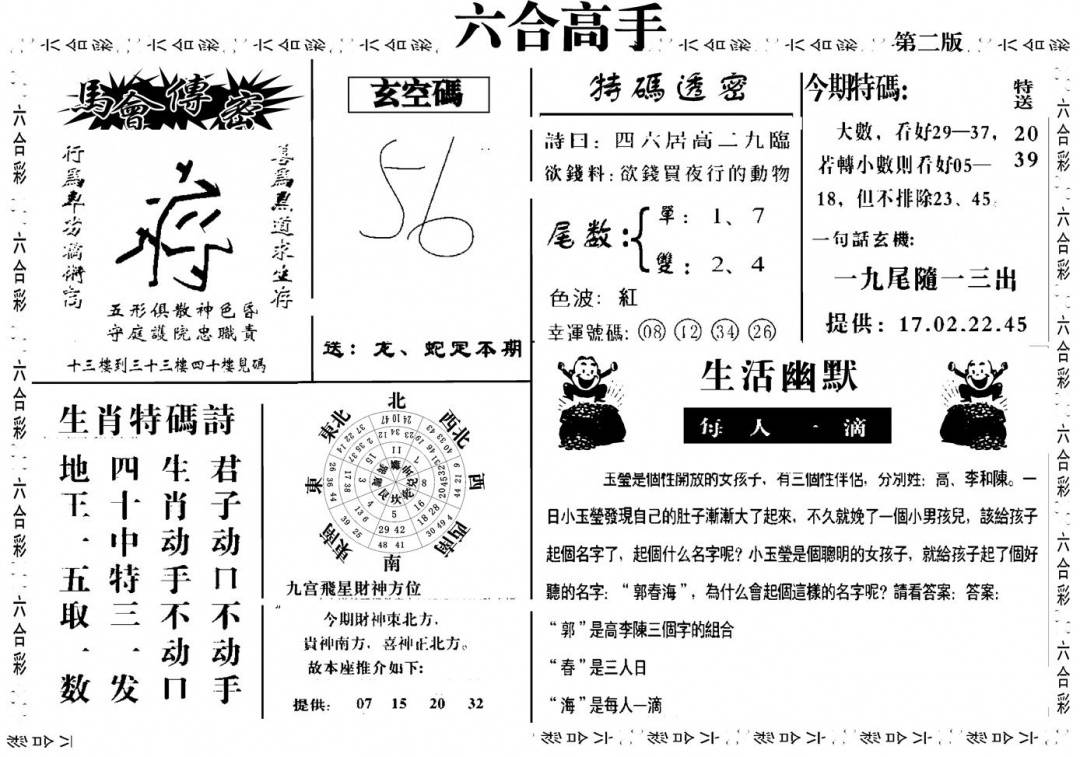 六合高手
第二版
馬會傳密
行爲卑劣稿術高
善爲點道求生存
五形俱散神色昏
守庭護院忠職責
十三樓到三十三樓四十樓見碼
玄空碼
送：龙、蛇定本期
特碼透密
詩曰：四六居高二九臨
欲錢料：欲錢買夜行的動物
尾数：
單：1、7
雙：2、4
色波：紅
幸運號碼：08 12 34 26
今期特碼：
特送
20
39
大數，看好29—37，
若轉小數則看好05—
18，但不排除23、45。
一句話玄機：
一九尾隨一三出
提供：17.02.22.45
生肖特碼詩
君子动口不动手
生肖动手不动口
四十中特三一发
地王一五取一数
北
西北
西
西南
南
東南
東
東北
九宫飛星財神方位
今期財神東北方，
貴神南方，喜神正北方。
故本座推介如下：
提供： 07 15 20 32
生活幽默
每人一滴
玉瑩是個性開放的女孩子，有三個性伴侶，分別姓：高、李和陳。一
日小玉瑩發現自己的肚子漸漸大了起來，不久就娩了一個小男孩兒，該給孩子
起個名字了，起個什么名字呢？小玉瑩是個聰明的女孩子，就給孩子起了個好
聽的名字：“郭春海”，為什么會起個這樣的名字呢？請看答案：答案：
“郭”是高李陳三個字的組合
“春”是三人日
“海”是每人一滴
六合彩